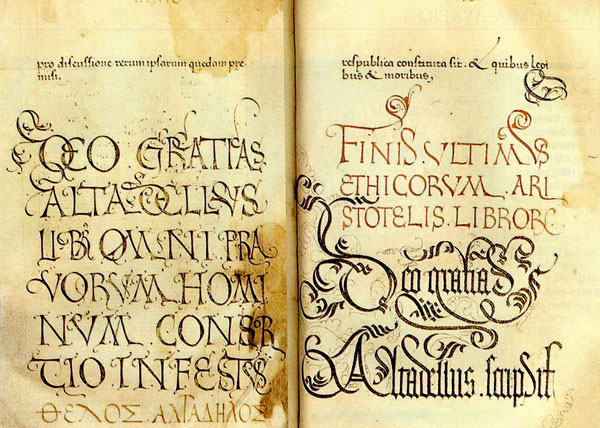 pro discussione rerum ipsarum quedam pre
misi.
DEO GRATIAS
ALTADELLVS
OMNI. PRA
VORVM HOMI
NVM. CONSOR
TIO INFESTVS
ΘΕΛΟΣ ΑΛΤΑΔΗΛΟΣ
respublica constituta sit. & quibus legi
bus & moribus,
FINIS. VLTIMVS
ETHICORVM. ARI
STOTELIS. LIBRORꝜ
Deo gratias
Altadellus. scripsit